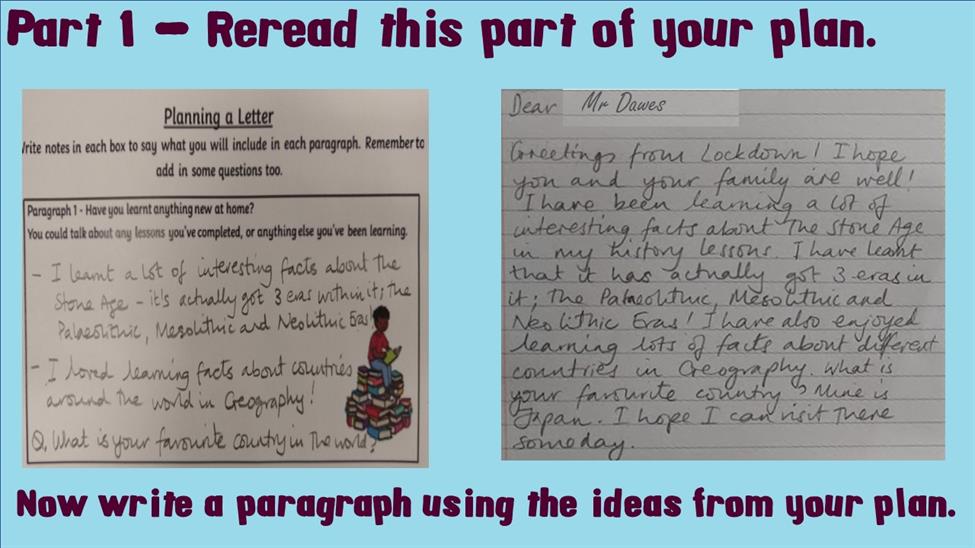 Part 1 – Reread this part of your plan.
Planning a Letter
Write notes in each box to say what you will include in each paragraph. Remember to
add in some questions too.
Paragraph 1 - Have you learnt anything new at home?
You could talk about any lessons you've completed, or anything else you've been learning.
- I learnt a lot of interesting facts about the
Stone Age - it's actually got 3 eras within it; the
Palaeolithic, Mesolithic and Neolithic Eras!
- I loved learning facts about countries
around the world in Geography!
Q. What is your favourite country in the world?
Dear Mr Dawes
Greetings from Lockdown! I hope
you and your family are well!
I have been learning a lot of
interesting facts about The Stone Age
in my history lessons. I have learnt
that it has actually got 3 eras in
it; The Palaeolithic, Mesolithic and
Neolithic Eras! I have also enjoyed
learning lots of facts about different
countries in Geography. What is
your favourite country? Mine is
Japan. I hope I can visit there
someday.
Now write a paragraph using the ideas from your plan.